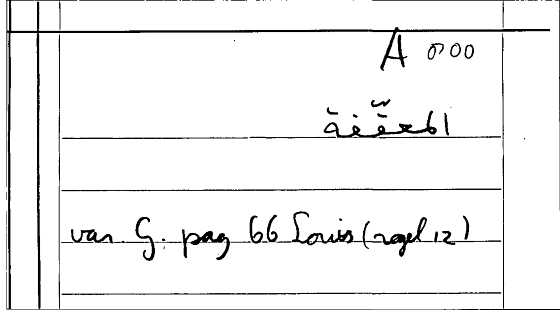 A 000
المعقّفة
van G. pag 66 Louis (regel 12)